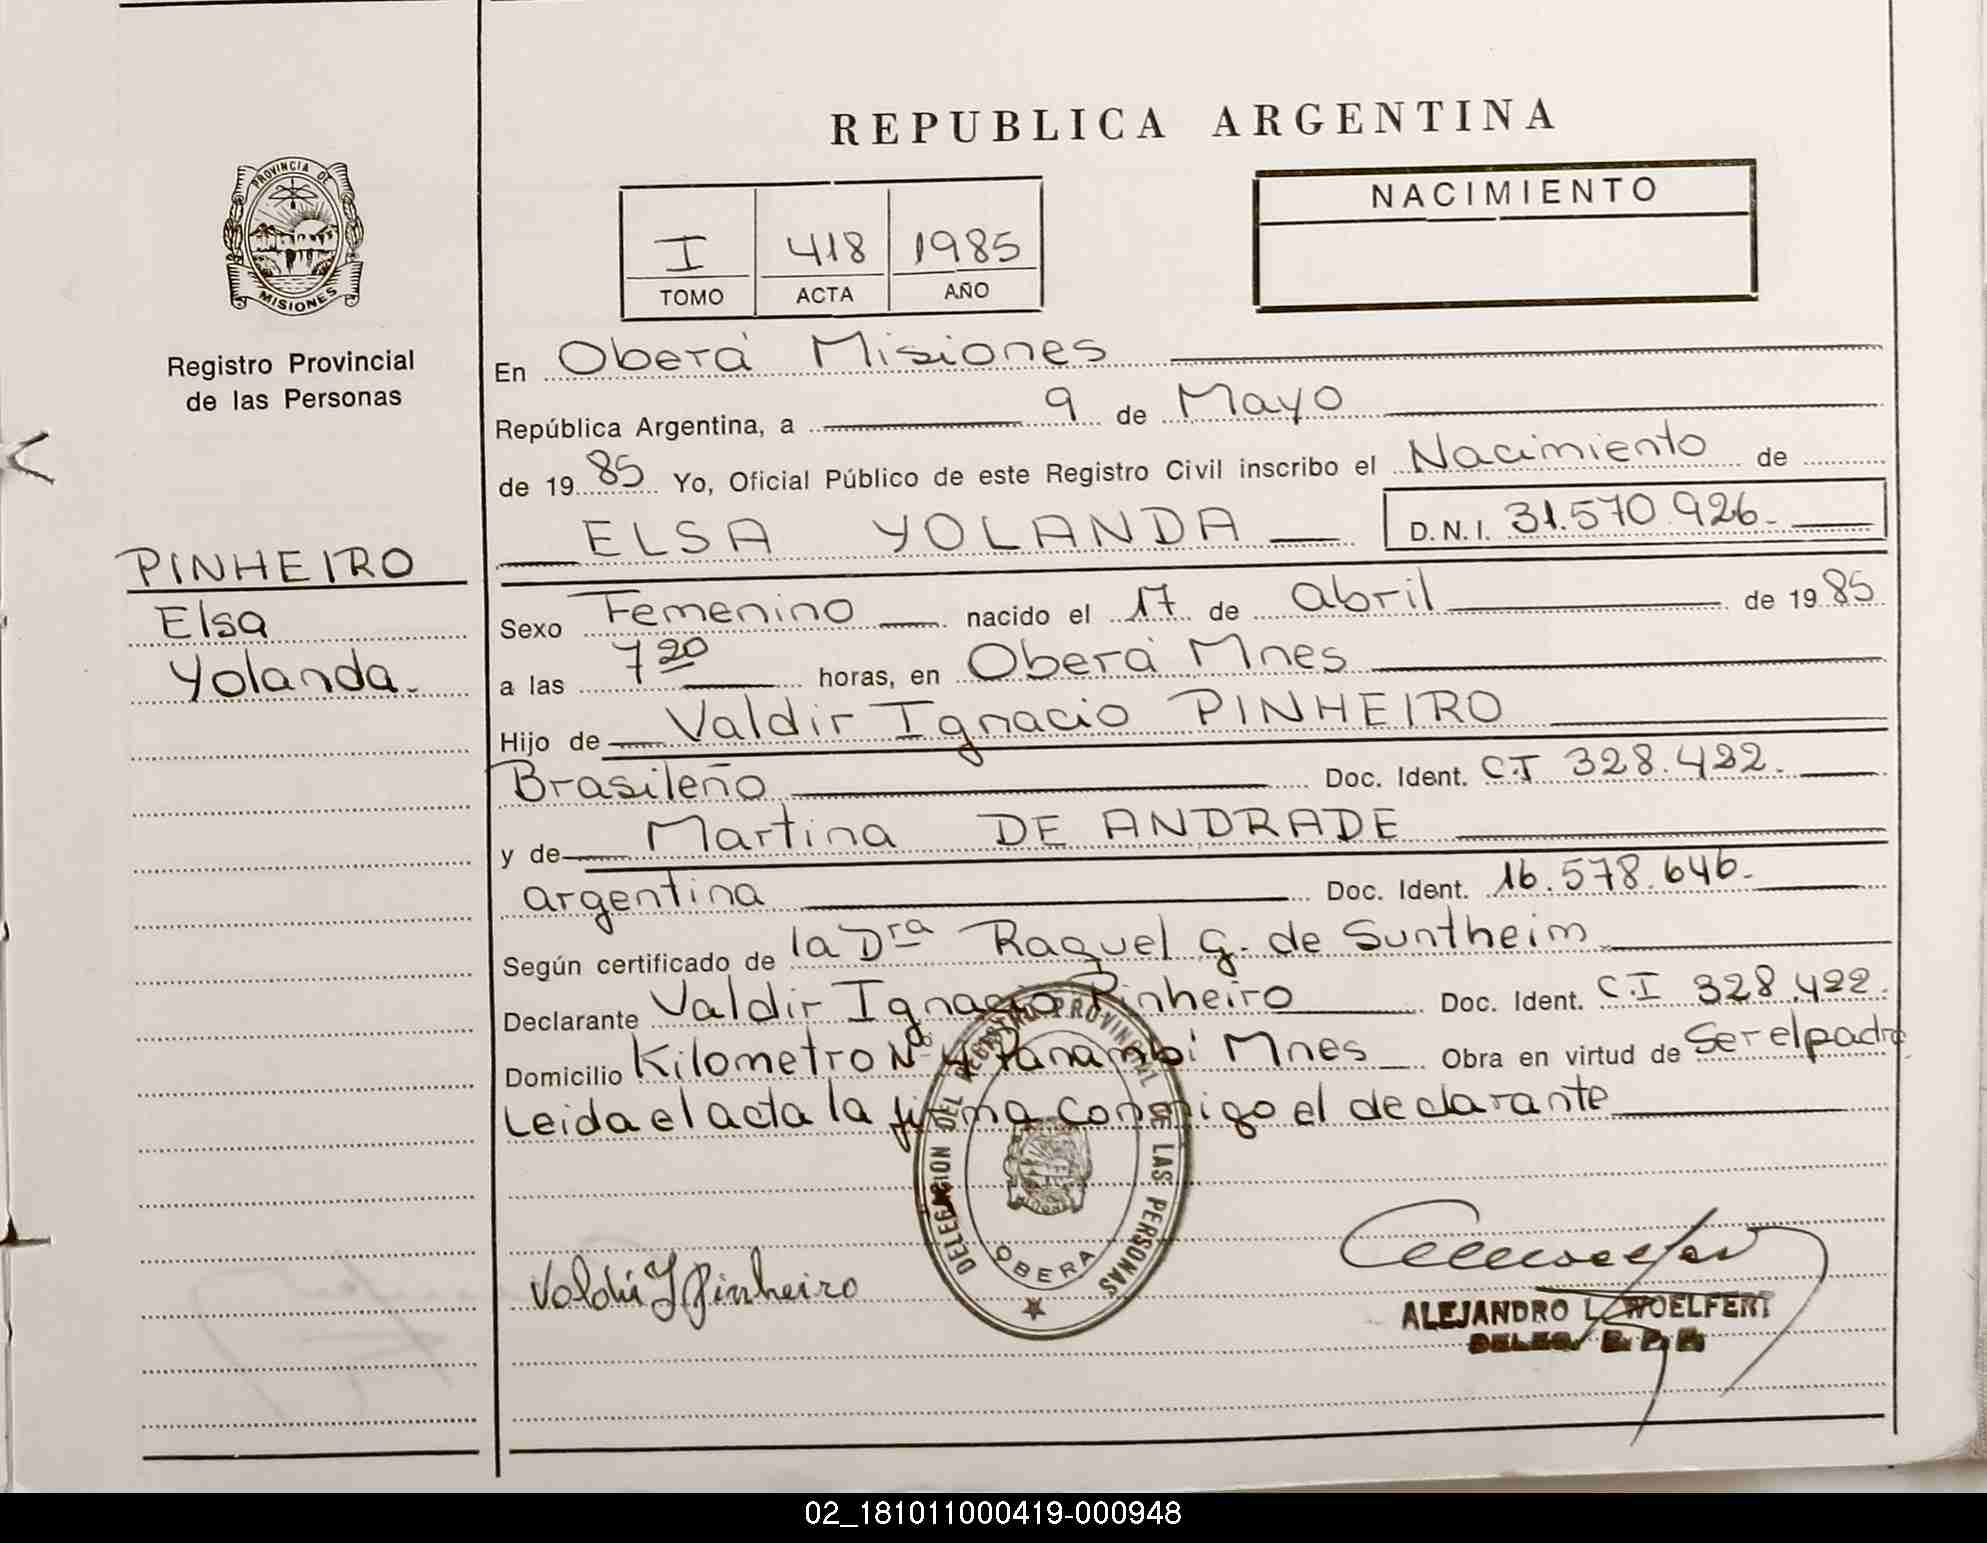 REPUBLICA ARGENTINA
PROVINCIA DE
MISIONES
Registro Provincial
de las Personas
NACIMIENTO
I 418 1985
TOMO ACTA AÑO
En Oberá Misiones
República Argentina, a 9 de Mayo
de 19 85 Yo, Oficial Público de este Registro Civil inscribo el Nacimiento de
ELSA YOLANDA D.N.I. 31.570.926.
PINHEIRO
Elsa
Yolanda.
Sexo Femenino nacido el 17 de abril de 19 85
a las 7 20 horas, en Oberá Mnes
Hijo de Valdir Ignacio PINHEIRO
Brasileño Doc. Ident. C.I 328.422.
y de Martina DE ANDRADE
argentina Doc. Ident. 16.578.646.
Según certificado de la Dra Raquel G. de Suntheim
Declarante Valdir Ignacio Pinheiro Doc. Ident. C.I 328.422.
Domicilio Kilometro Nº 4 Panambi Mnes Obra en virtud de Ser el padre
Leida el acta la firma conmigo el declarante
DELEGACION DEL REGISTRO PROVINCIAL DE LAS PERSONAS
OBERA
Valdir I Pinheiro
ALEJANDRO L. WOELFERT
02_181011000419-000948